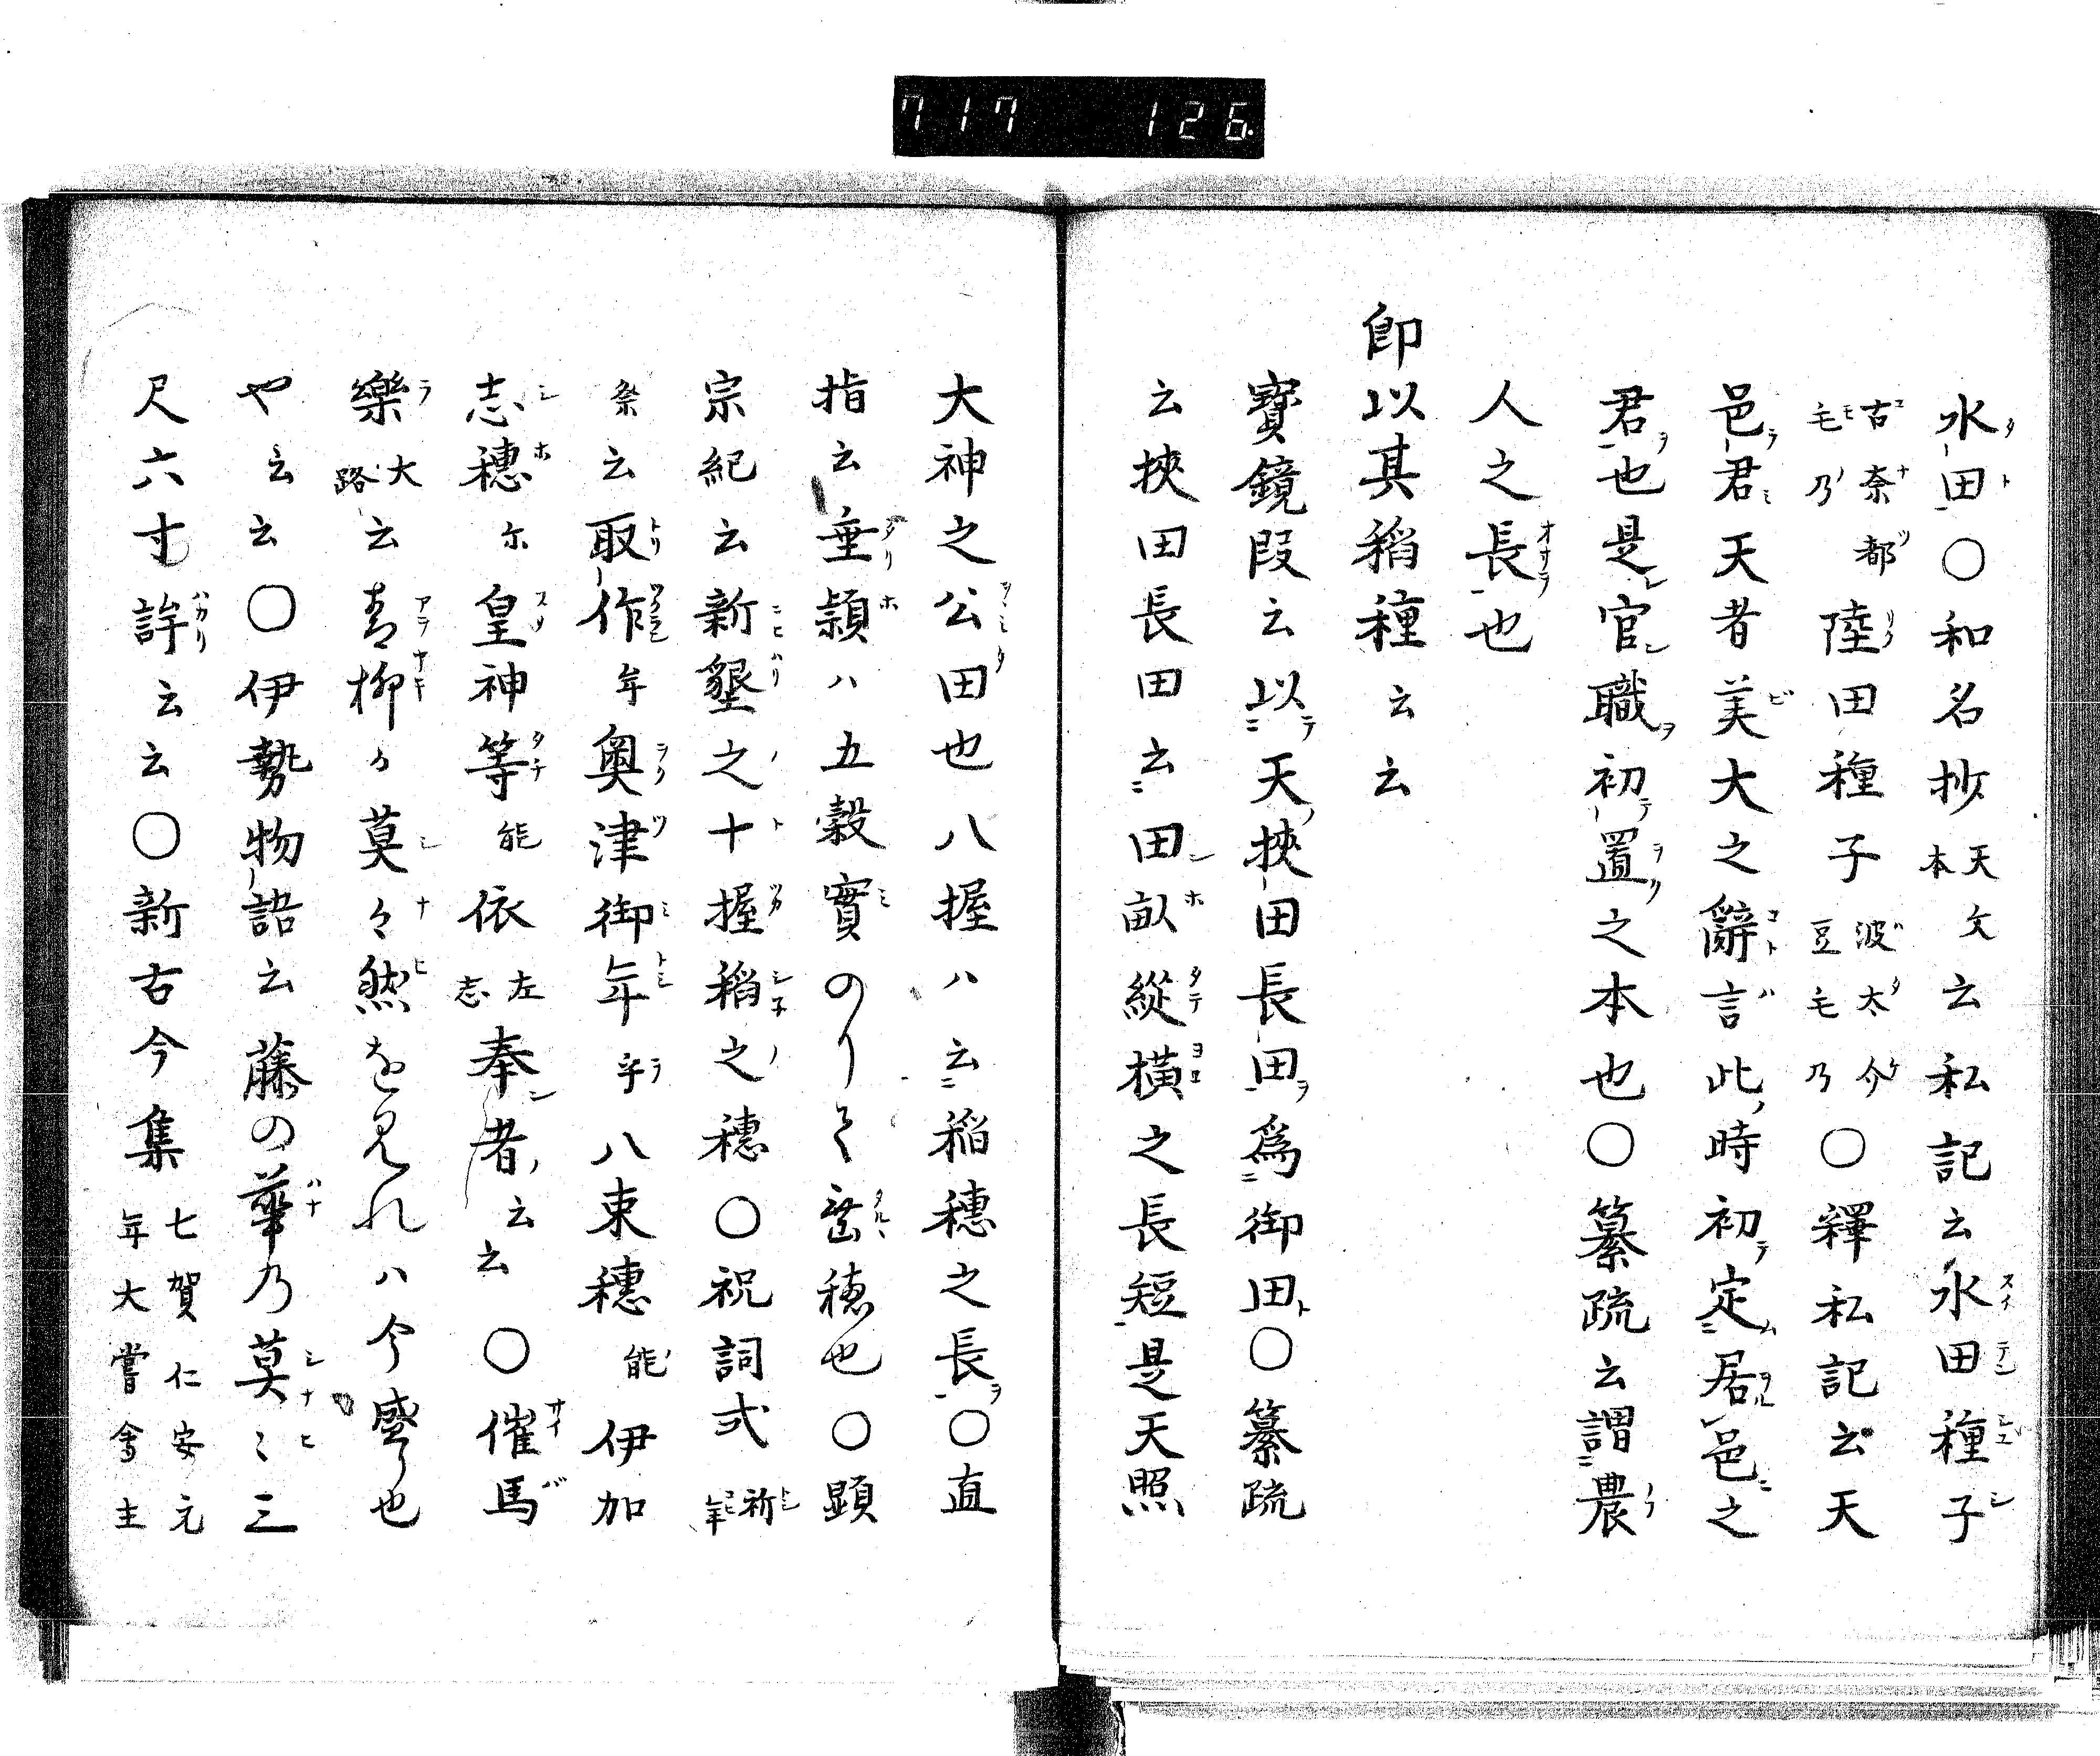 717 126
水田○和名抄天文本云私記云水田種子
古奈都毛乃陸田種子波太介豆毛乃○釋私記云天
邑君天者美大之辭言此時初定居邑之
君也是官職初置之本也○纂疏云謂農
人之長也
卽以其稻種云云
寶鏡段云以天挾田長田爲御田○纂疏
云挾田長田云田畝縱橫之長短是天照
大神之公田也八握ハ云稲穗之長○直
指云垂穎ハ五穀實のりて埀穂也○顕
宗紀云新墾之十握稻之穗○祝詞式祈年
祭云取作牟奥津御年乎八束穗能伊加
志穗尓皇神等能依左志奉者云云○催馬
樂大路云青柳か莫々然を見れハ今盛也
や云云○伊勢物語云藤の華乃莫〻三
尺六寸許云云○新古今集七賀仁安元年大嘗會主